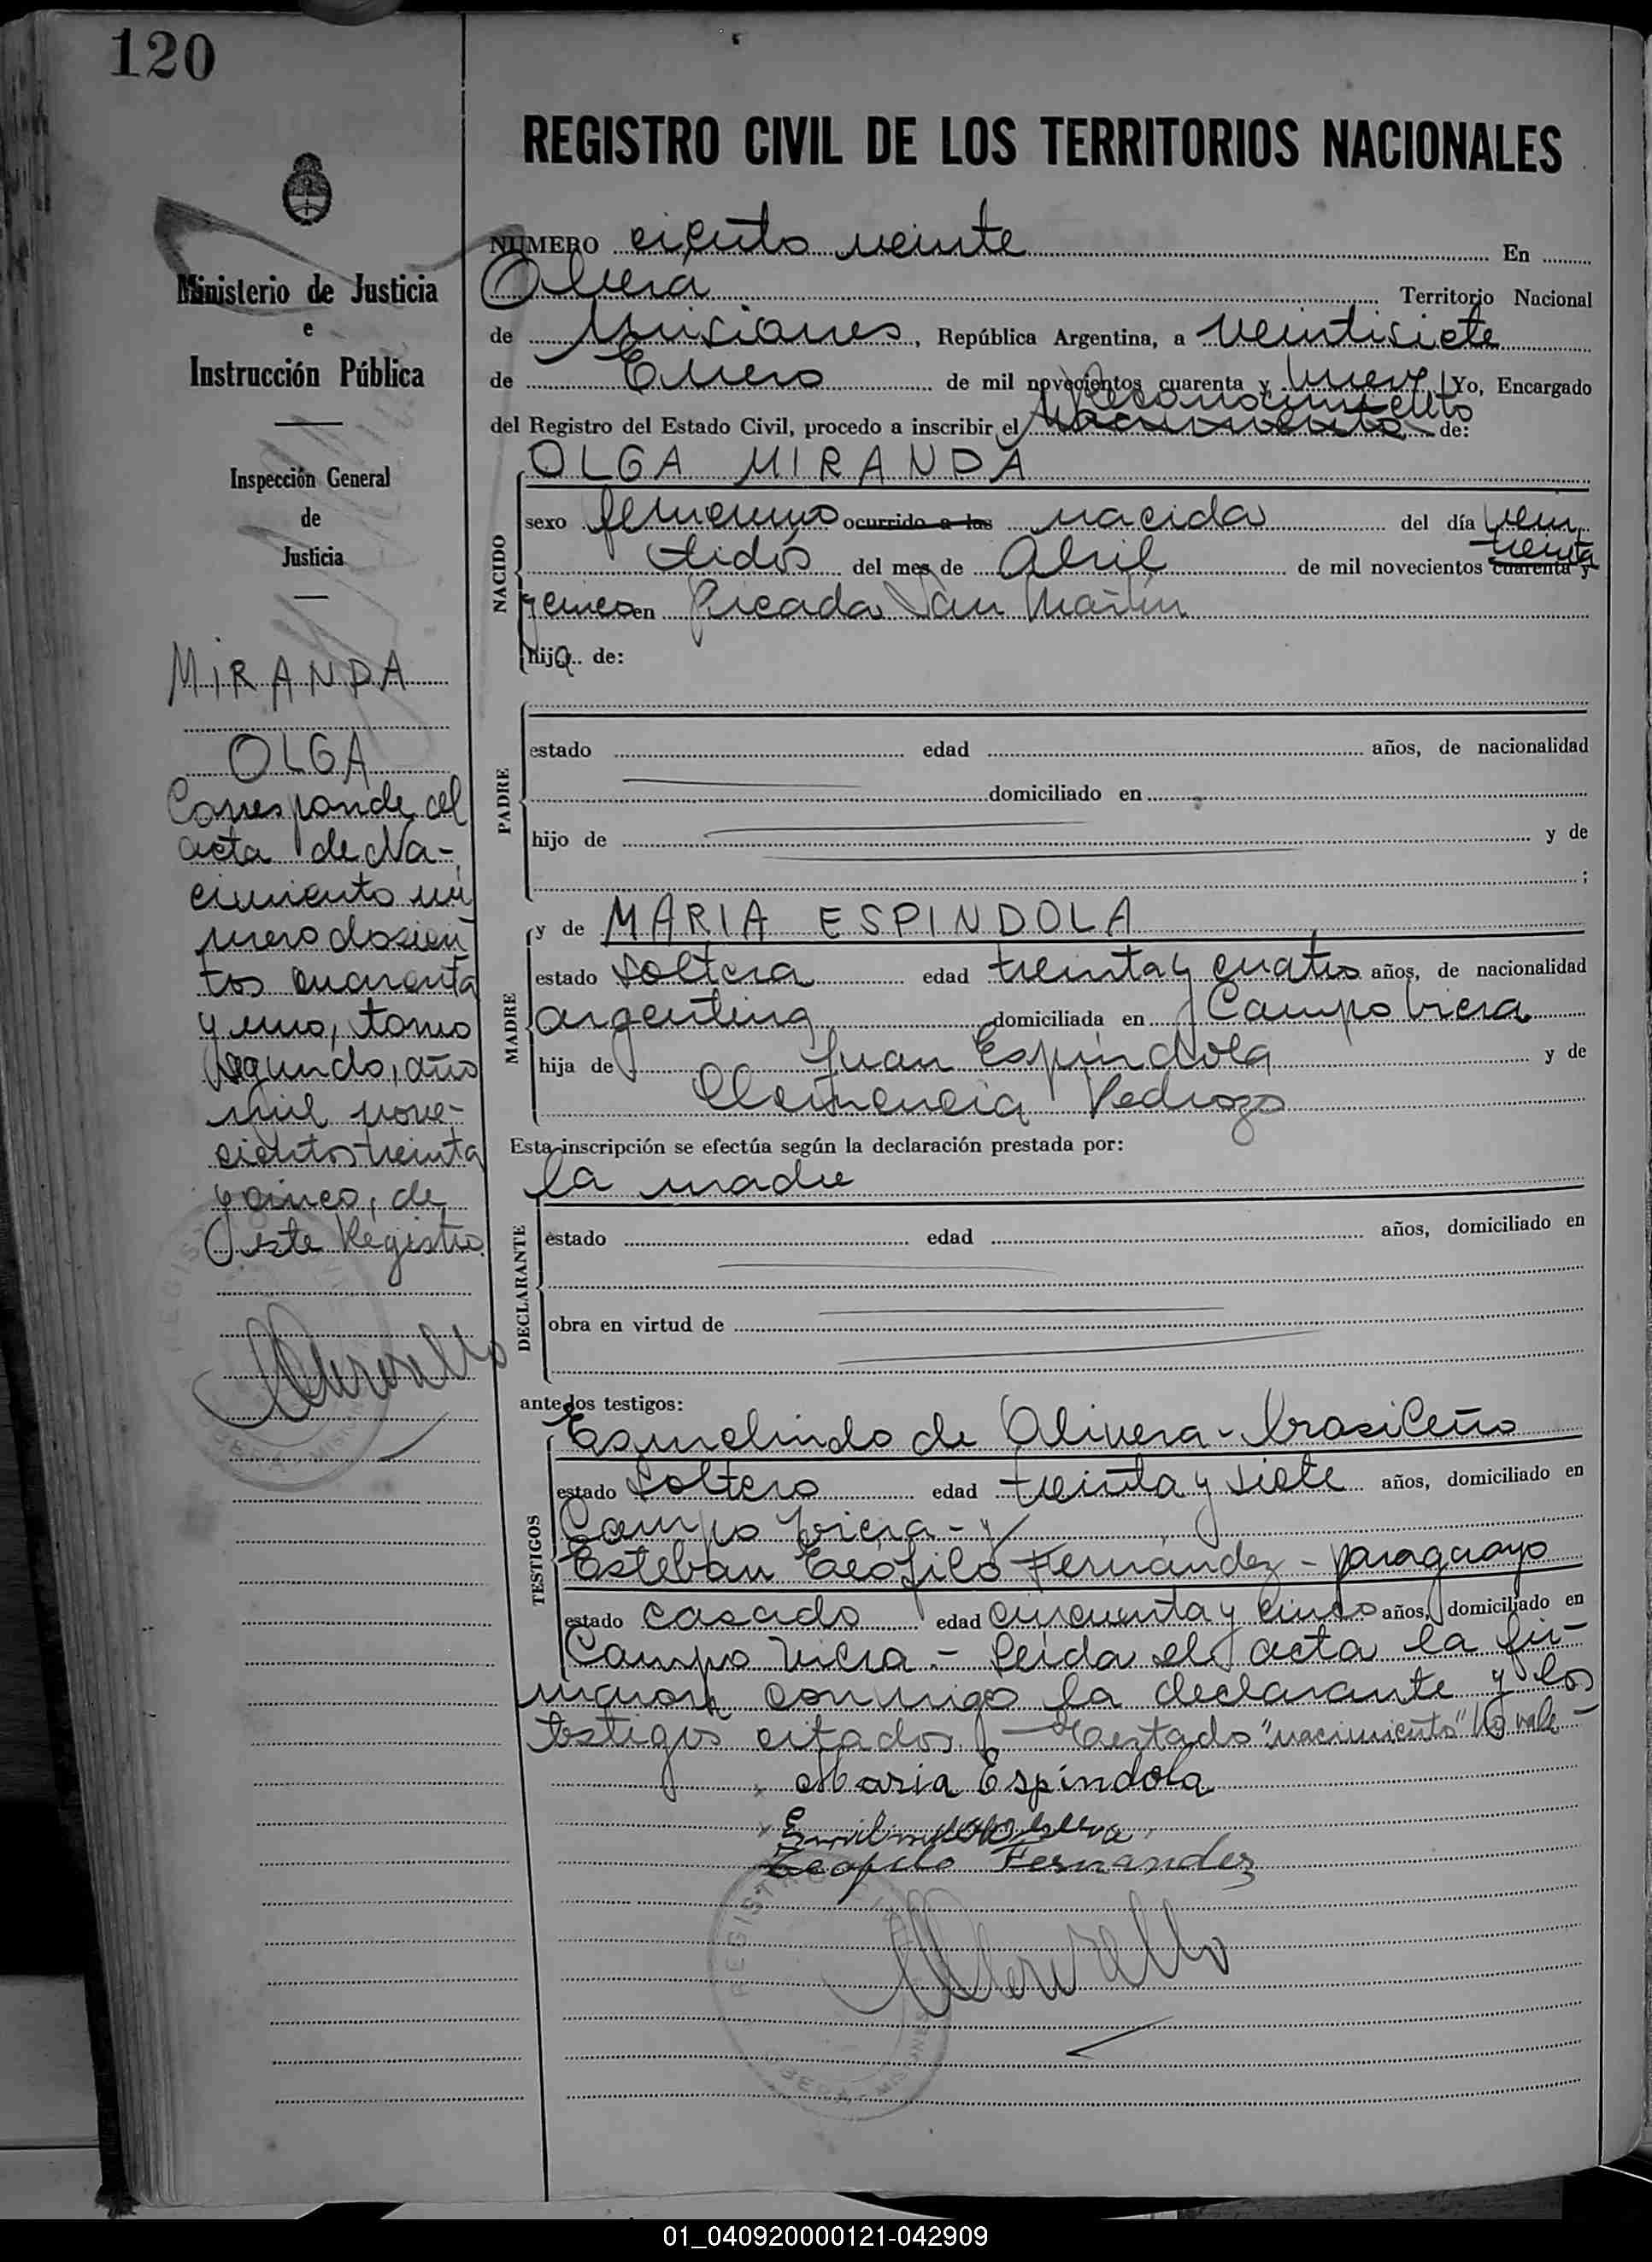 120
REGISTRO CIVIL DE LOS TERRITORIOS NACIONALES
Ministerio de Justicia
e
Instrucción Pública
Inspección General
de
Justicia
MIRANDA
OLGA
Corresponde al
acta de Na-
cimiento nú
mero doscien
tos cuarenta
y uno, tomo
segundo, año
mil nove-
cientos treinta
y cinco, de
este Registro
NUMERO ciento veinte En
Oberá Territorio Nacional
de Misiones, República Argentina, a veintisiete
de Enero de mil novecientos cuarenta y nueve Yo, Encargado
Reconocimiento
del Registro del Estado Civil, procedo a inscribir el nacimiento de:
OLGA MIRANDA
NACIDO
sexo femenino ocurrido a las nacida del día vein
treinta
tidós del mes de Abril de mil novecientos cuarenta y
y cinco en Picada San Martín
hija de:
PADRE
estado edad años, de nacionalidad
domiciliado en
hijo de y de
;
MADRE
y de MARIA ESPINDOLA
estado soltera edad treinta y cuatro años, de nacionalidad
argentina domiciliada en Campo Viera
hija de Juan Espíndola y de
Clemencia Pedrozo
Esta inscripción se efectúa según la declaración prestada por:
la madre
DECLARANTE
estado edad años, domiciliado en
obra en virtud de
ante los testigos:
TESTIGOS
de Olivera - brasileño
estado soltero edad treinta y siete años, domiciliado en
Campo Viera - y
Esteban Teófilo Fernández - paraguayo
estado casado edad cincuenta y cinco años, domiciliado en
Campo Viera.- Leída el acta la fir-
maron conmigo la declarante y los
testigos citados.- Testado "nacimiento" No vale-
Maria Espíndola
Teofilo Fernandez
REGISTRO
MISIONES
01_040920000121-042909